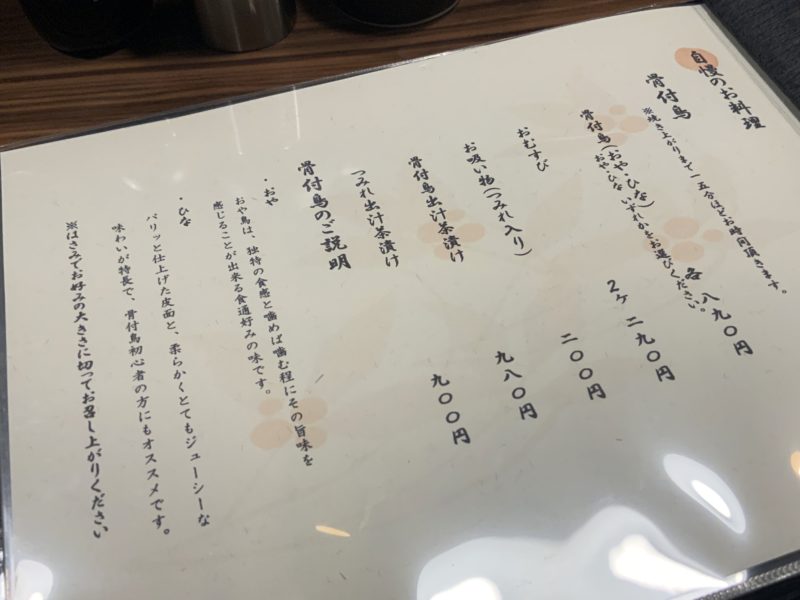 自慢のお料理
骨付鳥
※焼き上がりまで一五分ほどお時間頂きます。
骨付鳥(おや・ひな) 各 八九〇円
おや・ひないずれかをお選びください。
おむすび 2ヶ 二九〇円
お吸い物(つみれ入り) 二〇〇円
骨付鳥出汁茶漬け 九八〇円
つみれ出汁茶漬け 九〇〇円
骨付鳥のご説明
・おや
おや鳥は、独特の食感と噛めば噛む程にその旨味を
感じることが出来る食通好みの味です。
・ひな
パリッと仕上げた皮面と、柔らかくとてもジューシーな
味わいが特長で、骨付鳥初心者の方にもオススメです。
※はさみでお好みの大きさに切ってお召し上がりください